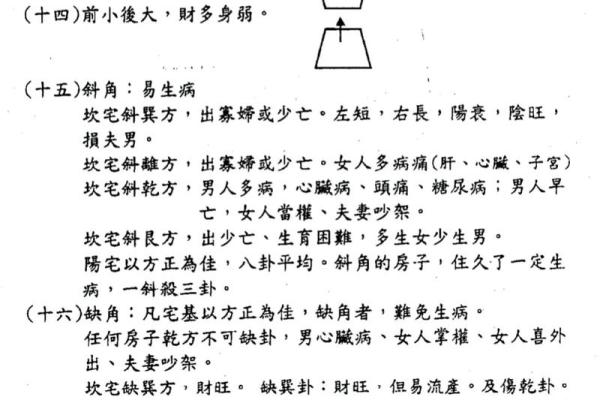 (十四)前小後大，財多身弱。
(十五)斜角：易生病
坎宅斜巽方，出寡婦或少亡。左短，右長，陽衰，陰旺，
損夫男。
坎宅斜離方，出寡婦或少亡。女人多病痛(肝、心臟、子宮)
坎宅斜乾方，男人多病，心臟病、頭痛、糖尿病；男人早
亡，女人當權、夫妻吵架。
坎宅斜艮方，出少亡、生育困難，多生女少生男。
陽宅以方正為佳，八卦平均。斜角的房子，住久了一定生
病，一斜殺三卦。
(十六)缺角：凡宅基以方正為佳，缺角者，難免生病。
任何房子乾方不可缺卦，男心臟病、女人掌權、女人喜外
出、夫妻吵架。
坎宅缺巽方，財旺。 缺巽卦：財旺，但易流產。及傷乾卦。